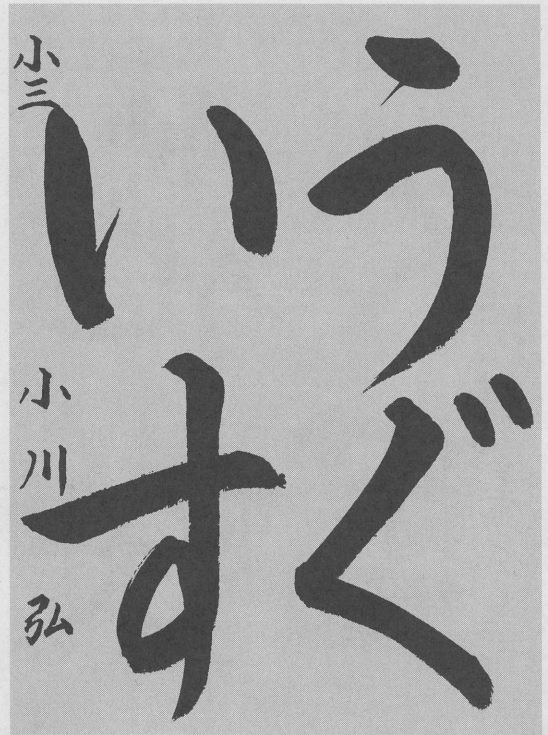 うぐ
いす
小三 小川 弘